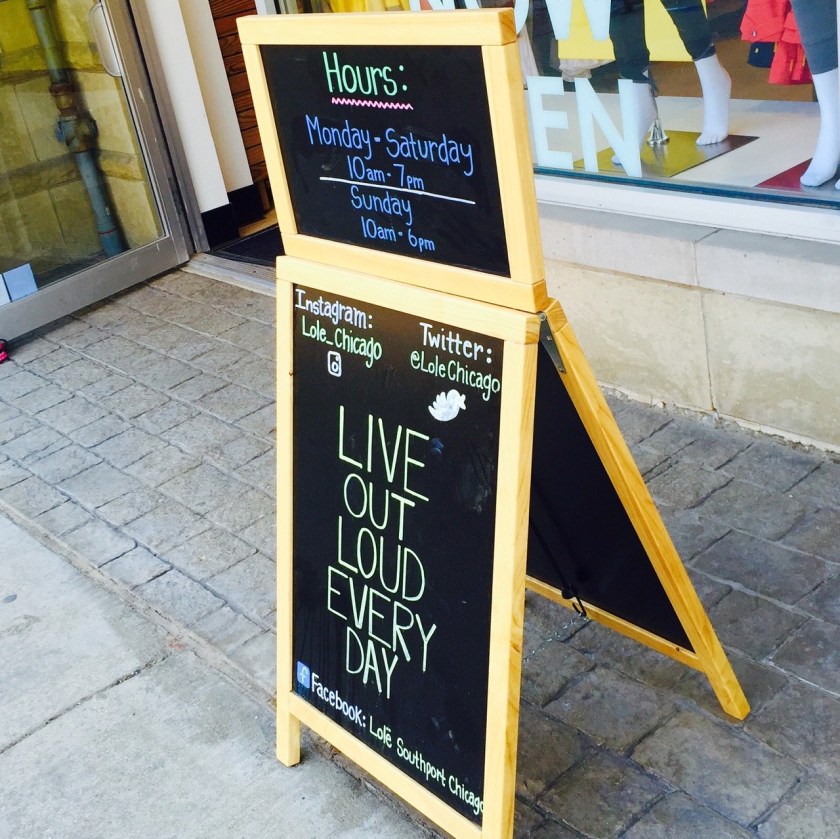 Hours:
Monday - Saturday
10am - 7pm
Sunday
10am - 6pm
Instagram:
Lole_Chicago
Twitter:
@LoleChicago
LIVE
OUT
LOUD
EVERY
DAY
Facebook: Lolë Southport Chicago
NOW
OPEN